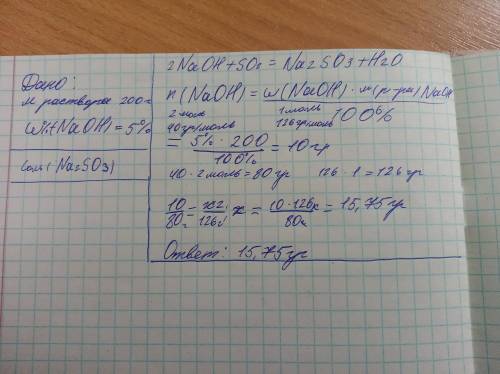 Дано:
m раствора 200г
w%(NaOH) = 5%
соли (Na2SO3)
2NaOH + SO2 = Na2SO3 + H2O
n (NaOH) = w(NaOH) · m(р-ра) NaOH
100%
2 моль 1 моль
40гр/моль 126гр/моль
= 5% · 200 / 100% = 10 гр
40 · 2 моль = 80 гр 126 · 1 = 126 гр
10 / 80г = xг / 126г x = 10 · 126 / 80 = 15,75 гр
Ответ: 15,75 гр